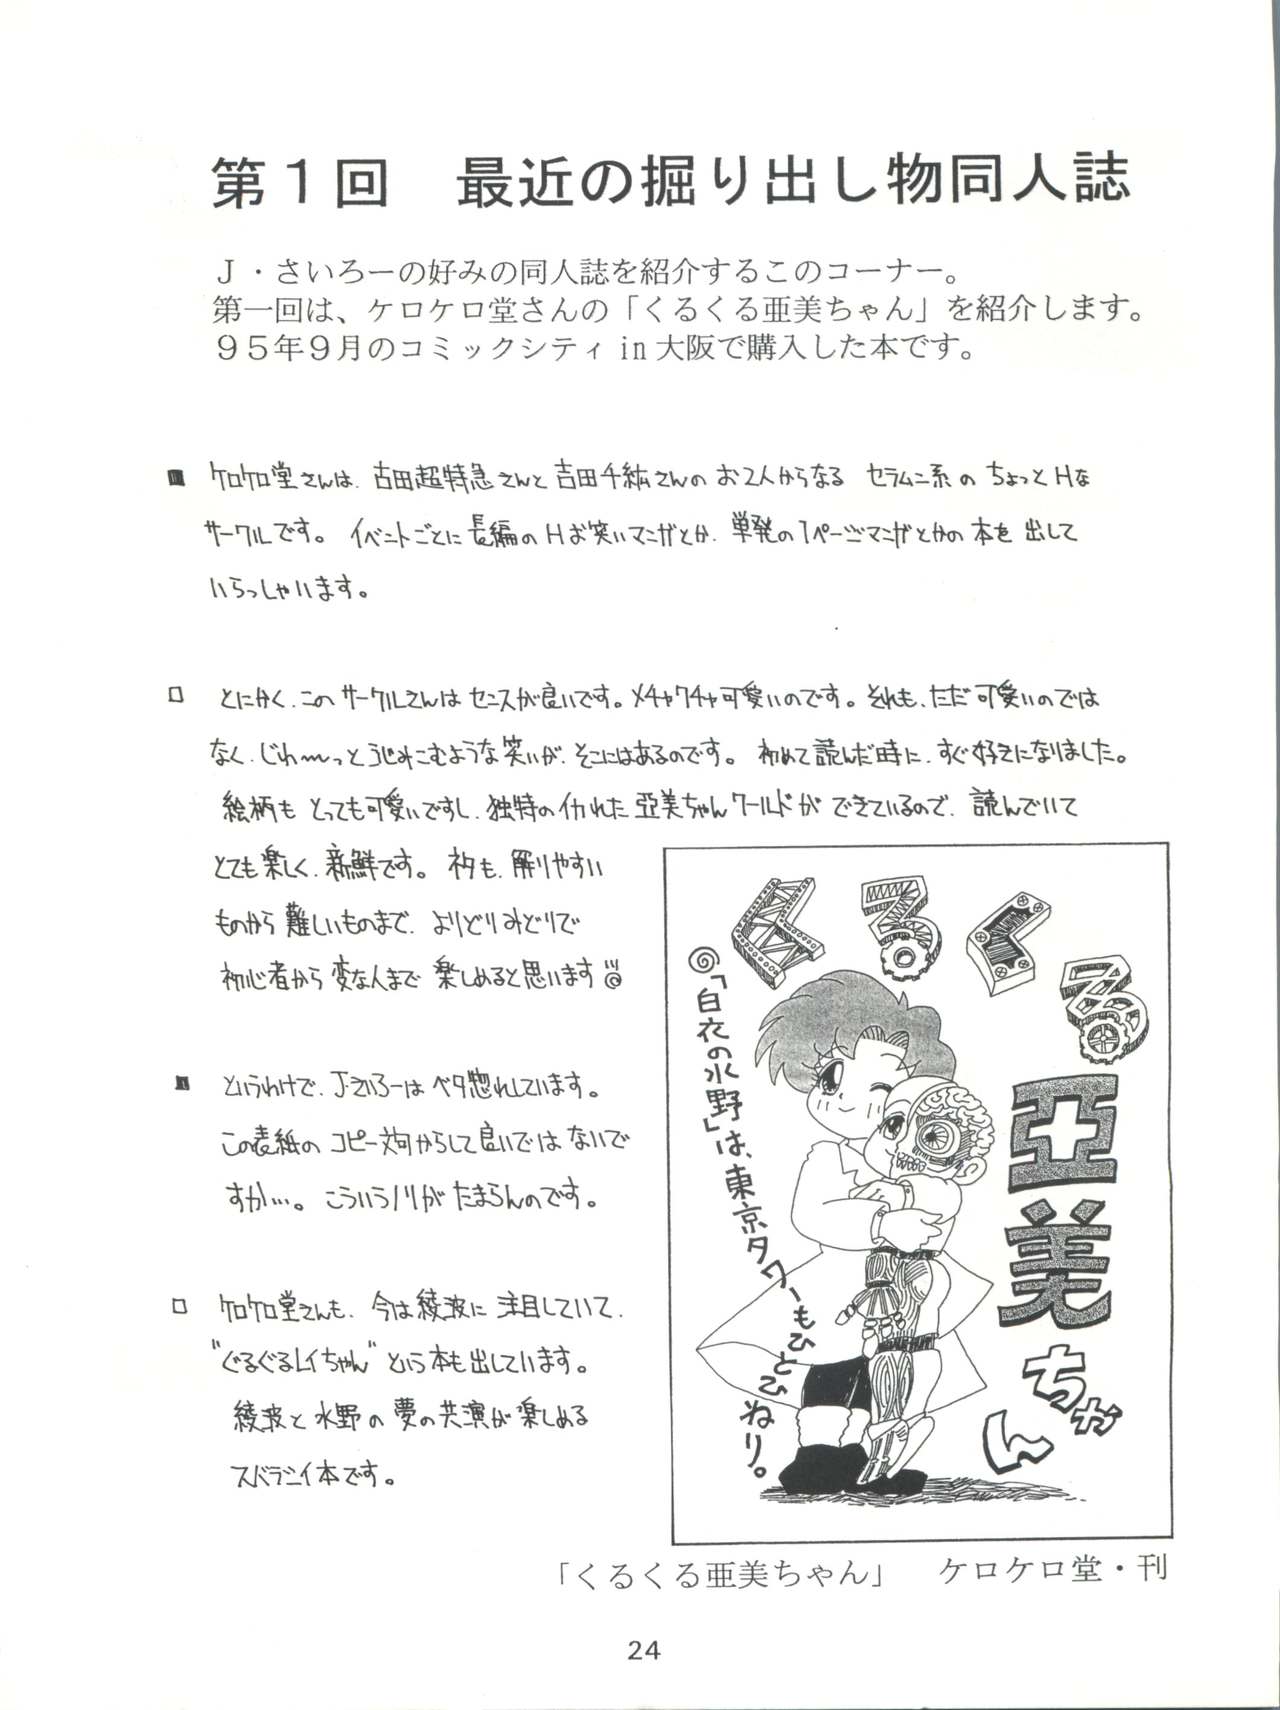 第１回　最近の掘り出し物同人誌
Ｊ・さいろーの好みの同人誌を紹介するこのコーナー。
第一回は、ケロケロ堂さんの「くるくる亜美ちゃん」を紹介します。
９５年９月のコミックシティ in 大阪で購入した本です。
■ ケロケロ堂さんは、古田超特急さんと吉田千紘さんのお2人からなる セラムン系の ちょっとHな
サークルです。 イベントごとに長編のHお笑いマンガとか、単発の1ページマンガとかの本を出して
いらっしゃいます。
□ とにかく、このサークルさんはセンスが良いです。メチャクチャ可愛いのです。それも、ただ可愛いのでは
なく、じわ〜っとうじみこむような笑いが、そこにはあるのです。 初めて読んだ時に、すぐ好きになりました。
絵柄も とっても可愛いですし、独特のイカれた亞美ちゃんワールドが できているので、読んでいて
とても楽しく、新鮮です。 ネタも、解りやすい
ものから難しいものまで、よりどりみどりで
初心者から変な人まで楽しめると思います
■ というわけで、Jさいろーは ベタ惚れしています。
この表紙の コピー文句からして良いではないで
すか…。 こういうノリが たまらんのです。
□ ケロケロ堂さんも、今は綾波に注目していて、
"ぐるぐるレイちゃん" という本も出しています。
綾波と水野の夢の共演が楽しめる
スバラシイ本です。
くるくる
亞美ちゃん
「白衣の水野」は、東京タワーもひとひねり。
「くるくる亜美ちゃん」　ケロケロ堂・刊
24